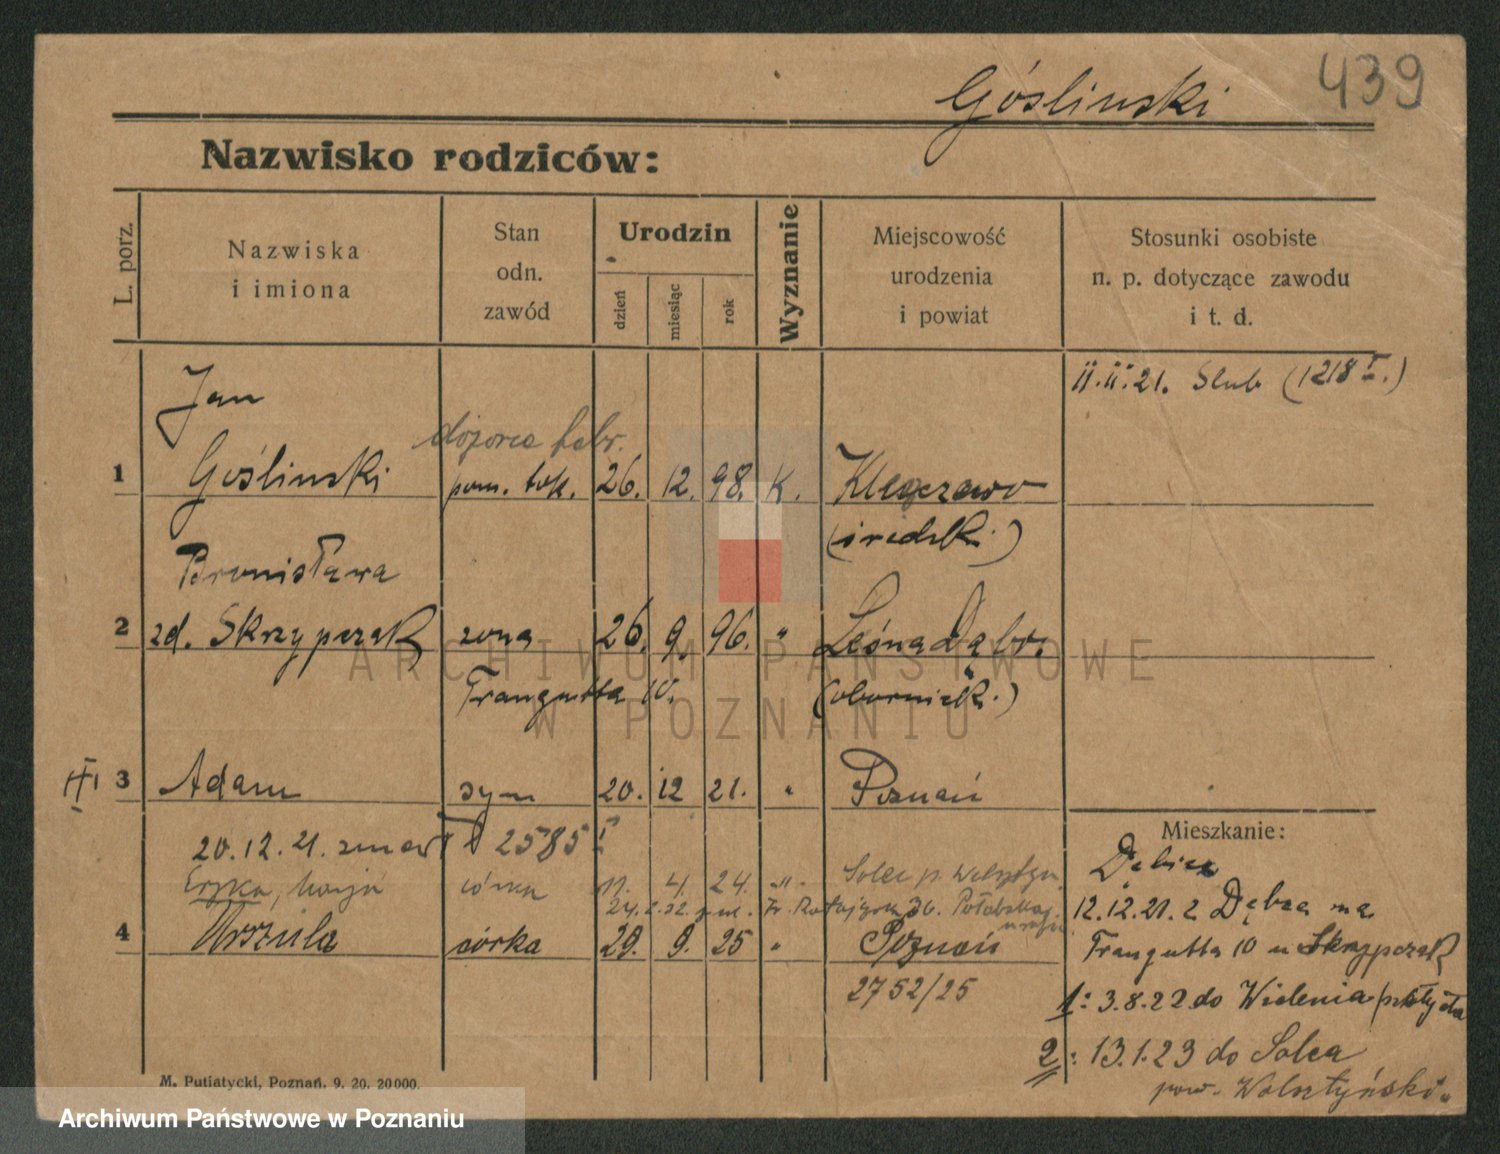 439
Góslinski
Nazwisko rodziców:
L. porz.
Nazwiska
i imiona
Stan
odn.
zawód
Urodzin
dzień
miesiąc
rok
Wyznanie
Miejscowość
urodzenia
i powiat
Stosunki osobiste
n. p. dotyczące zawodu
i t. d.
II.II.21. Slub (1218 I.)
Jan
dozorca fabr.
1 Goślinski pom. tok. 26. 12. 98. K.
(średzki.)
Bronisława
2 zd. Skrzypczak zona 26. 9. 96. "
Traugutta 10. (obornick.)
III 3 Adam syn 20. 12 21. " Poznań
20.12.21. zmarł 2585 I
Mieszkanie:
córka 11. 4. 24. " Solec p. Wolsztyn
24. 2. 32. Fr. Ratajczak 36.
12.12.21. z Dębca na
4 Urszula córka 29. 9. 25 " Poznań
Traugutta 10 u Skrzypczak
2752/25
1: 3.8.22 do Wielenia
2: 13.1.23 do Solca
pow. Wolsztyński.
M. Putiatycki, Poznań. 9. 20. 20000.
ARCHIWUM PAŃSTWOWE
W POZNANIU
Archiwum Państwowe w Poznaniu